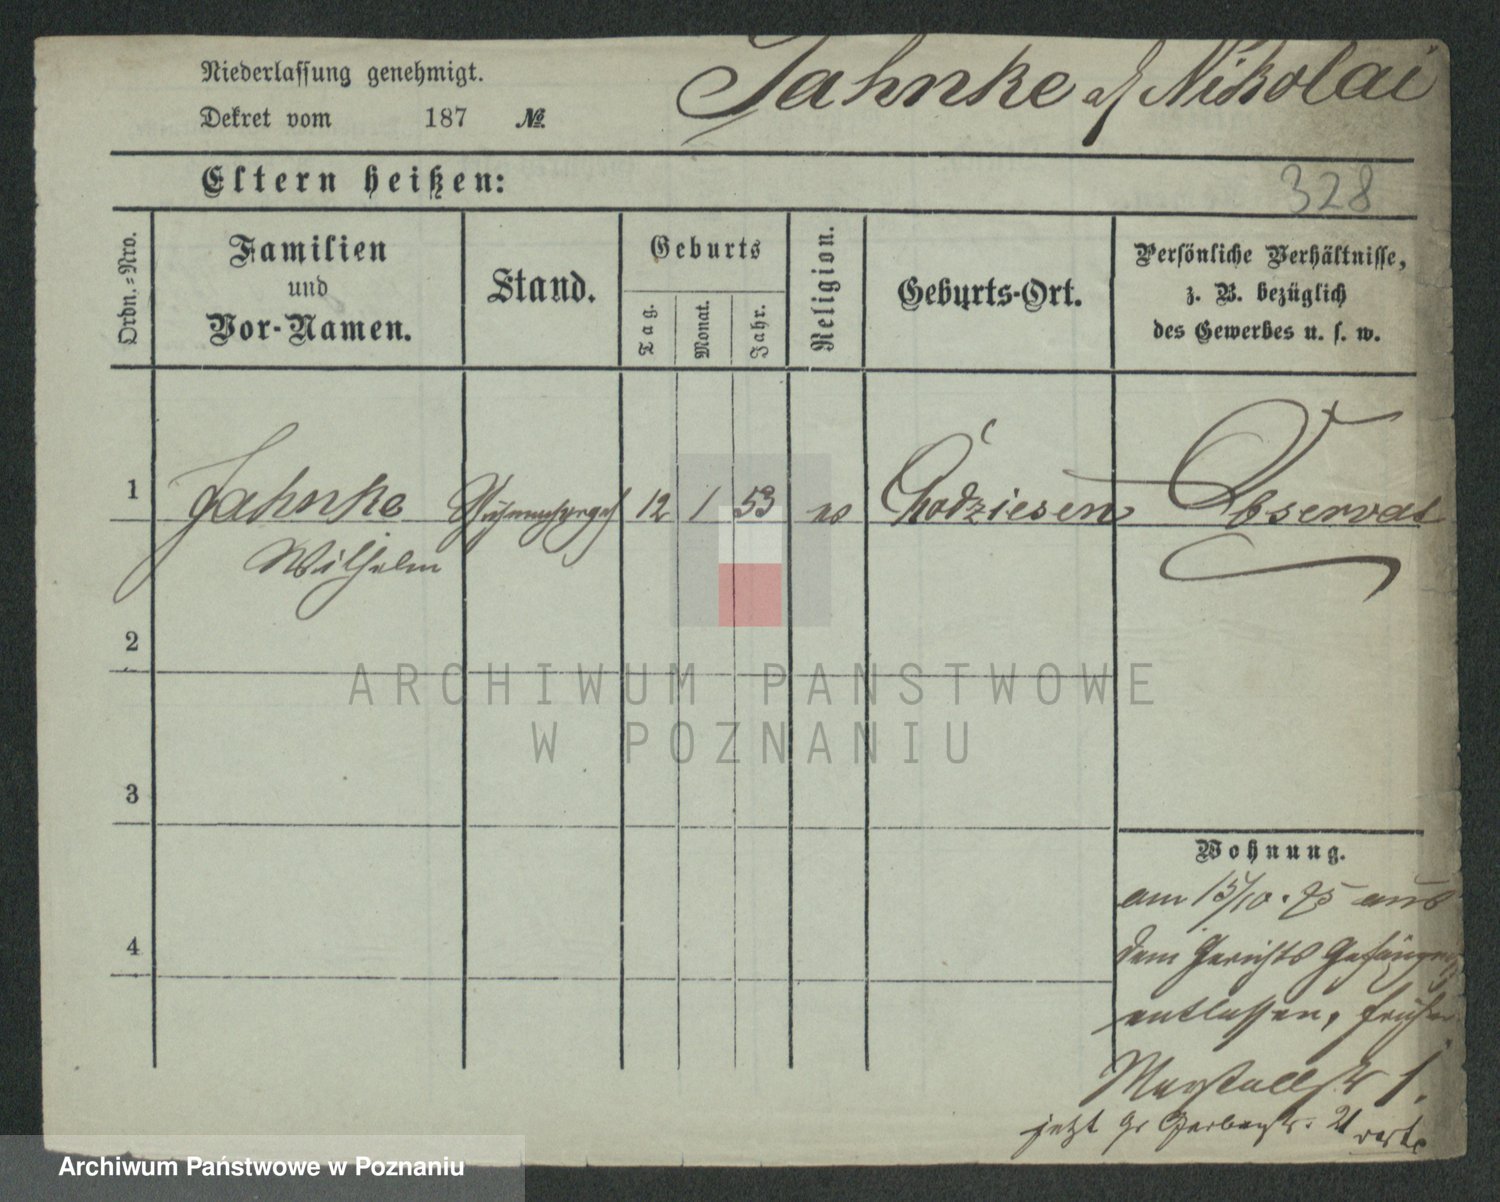 Niederlassung genehmigt.
Jahnke at Nikolai
Dekret vom 187 №
Eltern heißen:
328
Ordn.-Nro.
Familien
und
Vor-Namen.
Stand.
Geburts
Tag.
Monat.
Jahr.
Religion.
Geburts-Ort.
Persönliche Verhältnisse,
z. B. bezüglich
des Gewerbes u. s. w.
1 Jahnke 12 1 53 ev Chodziesen Observat
Wilhelm
2
3
4
Wohnung.
am 15/10. 75 aus
dem Gerichts Gefängn
entlassen, früher
Marstallstr 1.
jetzt Gr Gerberstr. 21
verte
ARCHIWUM PAŃSTWOWE
W POZNANIU
Archiwum Państwowe w Poznaniu